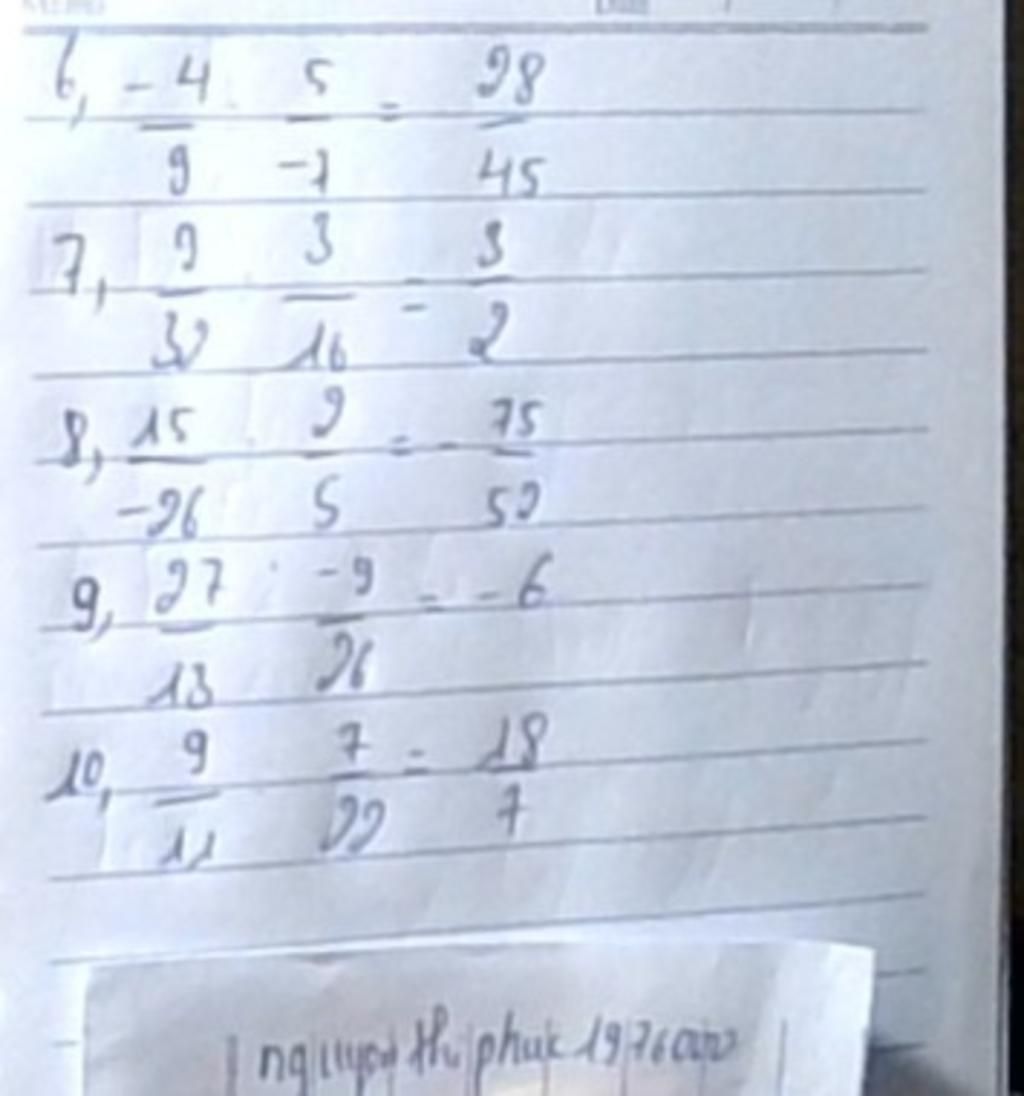 6, -4/9 : 5/-7 = 28/45
7, 9/32 : 3/16 = 3/2
8, 15/-26 : 2/5 = - 75/52
9, 27/13 : -9/26 = - 6
10, 9/11 : 7/22 = 18/7
thị phuc 1976000